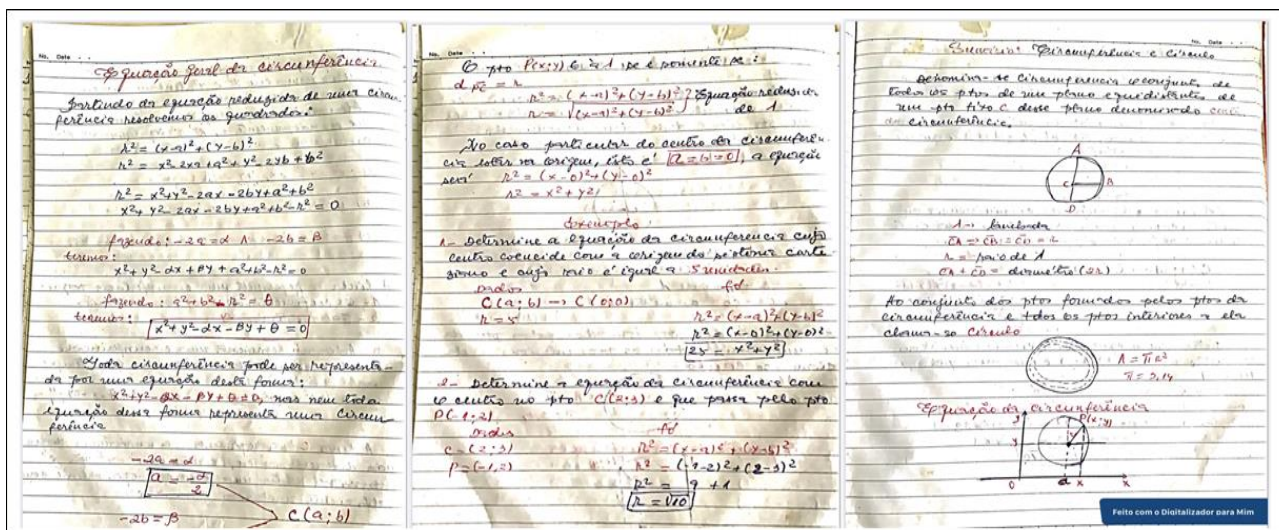 No. Date
Equação geral da circunferência
Partindo da equação reduzida de uma circun-
ferência resolvemos os quadrados:
r² = (x-a)² + (y-b)²
r² = x² - 2xa + a² + y² - 2yb + b²
r² = x² + y² - 2ax - 2by + a² + b²
x² + y² - 2ax - 2by + a² + b² - r² = 0
fazendo: -2a = α ∧ -2b = β
teremos:
x² + y² - αx + βy + a² + b² - r² = 0
fazendo: a² + b² - r² = θ
teremos:
x² + y² - αx - βy + θ = 0
Toda circunferência pode ser representa-
da por uma equação desta forma:
x² + y² - αx - βy + θ = 0, mas nem toda
equação dessa forma representa uma circun
ferência
-2a = α
a = -α/2
-2b = β
C(a; b)
No. Date
O pto P(x; y) é a λ se e somente se:
d PC = r
r² = (x-a)² + (y-b)²
r = √(x-a)² + (y-b)²
Equação reduzida
de λ
No caso particular do centro da circunferên-
cia estar na origem, isto é a = b = 0, a equação
será
r² = (x-0)² + (y-0)²
r² = x² + y²
Exemplo
1- Determine a equação da circunferência cujo
centro coincide com a origem do sistema carte
siano e cujo raio é igual a 5 unidades.
Dados
C(a; b) → C(0; 0)
r = 5
r² = (x-a)² + (y-b)²
r² = (x-0)² + (y-0)²
25 = x² + y²
2- Determine a equação da circunferência com
o centro no pto C(2; 3) e que passa pelo pto
P(-1; 2)
Dados
C = (2; 3)
P = (-1, 2)
r² = (x-a)² + (y-b)²
r² = (-1-2)² + (2-3)²
r² = 9 + 1
r = √10
No. Date
Sumário: Circunferência e círculo
Denomina-se circunferência o conjunto de
todos os ptos de um plano equidistantes de
um pto fixo C desse plano denominado
da circunferência.
A
C B
D
CA = CB = CD = r
r = raio de λ
CA + CD = diametro (2r)
Ao conjunto dos ptos formados pelos ptos da
circunferência e todos os ptos interiores a ela
chama-se Círculo
A = πr²
π = 3,14
Equação da circunferência
y
P(x; y)
y
0 a x x
Feito com o Digitalizador para Mim